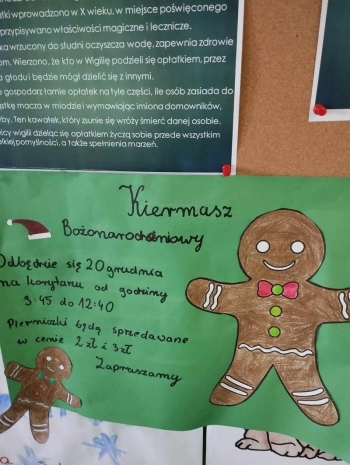 wprowadzono w X wieku, w miejsce poświęconego
przypisywano właściwości magiczne i lecznicze.
wrzucony do studni oczyszcza wodę, zapewnia zdrowie
Wierzono, że kto w Wigilię podzieli się opłatkiem, przez
głodu i będzie mógł dzielić się z innymi.
gospodarz łamie opłatek na tyle części, ile osób zasiada do
macza w miodzie i wymawiając imiona domowników,
Ten kawałek, który zsunie się wróży śmierć danej osobie.
wigilii dzieląc się opłatkiem życzą sobie przede wszystkim
pomyślności, a także spełnienia marzeń.
Kiermasz
Bożonarodzeniowy
Odbędzie się 20 grudnia
na korytarzu od godziny
9:45 do 12:40
Pierniczki będą sprzedawane
w cenie 2 zł i 3 zł
Zapraszamy